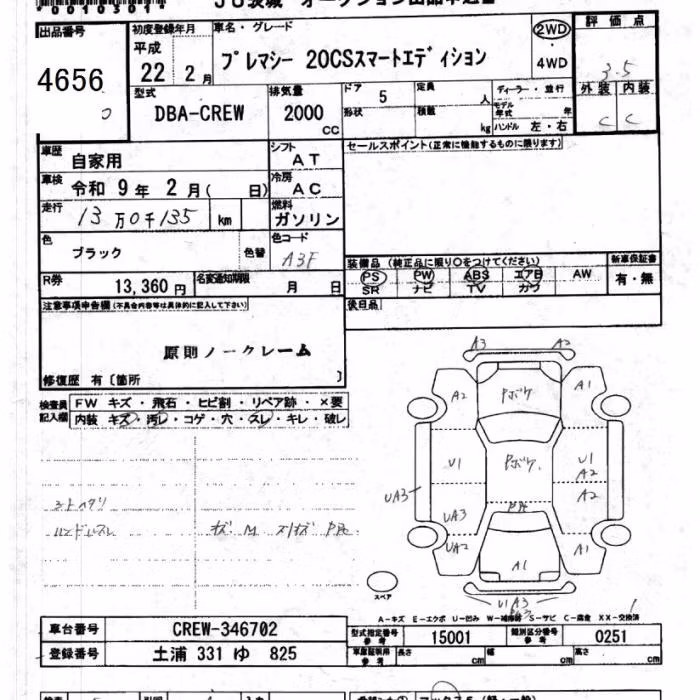 JU茨城 オークション出品申込書
出品番号 初度登録年月 車名・グレード 評価点
4656 平成 22年 2月 プレマシー 20CSスマートエディション 2WD 4WD 3.5
型式 DBA-CREW 排気量 2000 cc ドア 5 定員 人 ディーラー・並行 外装 内装
形状 積載 kg モデル年式 年 ハンドル 左・右 C C
車歴 自家用 シフト AT セールスポイント(正常に機能するものに限ります)
車検 令和 9年 2月( 日) 冷房 AC
走行 13万0千135 km 燃料 ガソリン
色 ブラック 色替 色コード A3F
装備品(純正品に限り○をつけてください) 新車保証書
R券 13,360円 名変通知期限 月 日 PS PW ABS エアB AW 有・無
SR ナビ TV カワ
注意事項申告欄(不具合内容等は具体的に記入して下さい) 後日品
原則ノークレーム
修復歴 有〔箇所 〕
検査員記入欄 FW キズ・飛石・ヒビ割・リペア跡・×要
内装 キズ・汚レ・コゲ・穴・スレ・キレ・破レ
シートヘタリ
ハンドルスレ
A3 A2
A2 Pボケ A1
U1 Pボケ U1
A2
UA3 UA3 A2
UA2 A1 A1
スペア
U1 A3
A-キズ E-エクボ U-凹み W-補修跡 S-サビ C-腐食 XX-交換済
車台番号 CREW-346702 型式指定番号 参考 15001 類別区分番号 参考 0251
登録番号 土浦 331 ゆ 825 車庫証明用 参考 長さ cm 幅 cm 高さ cm